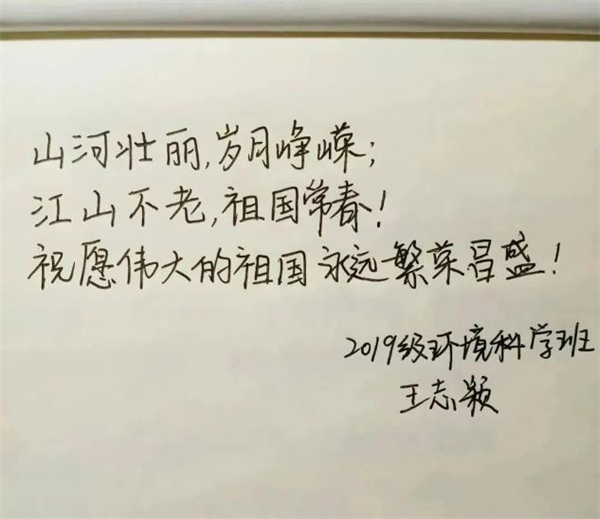 山河壮丽,岁月峥嵘;
江山不老,祖国常春!
祝愿伟大的祖国永远繁荣昌盛!
2019级环境科学班
王志颖